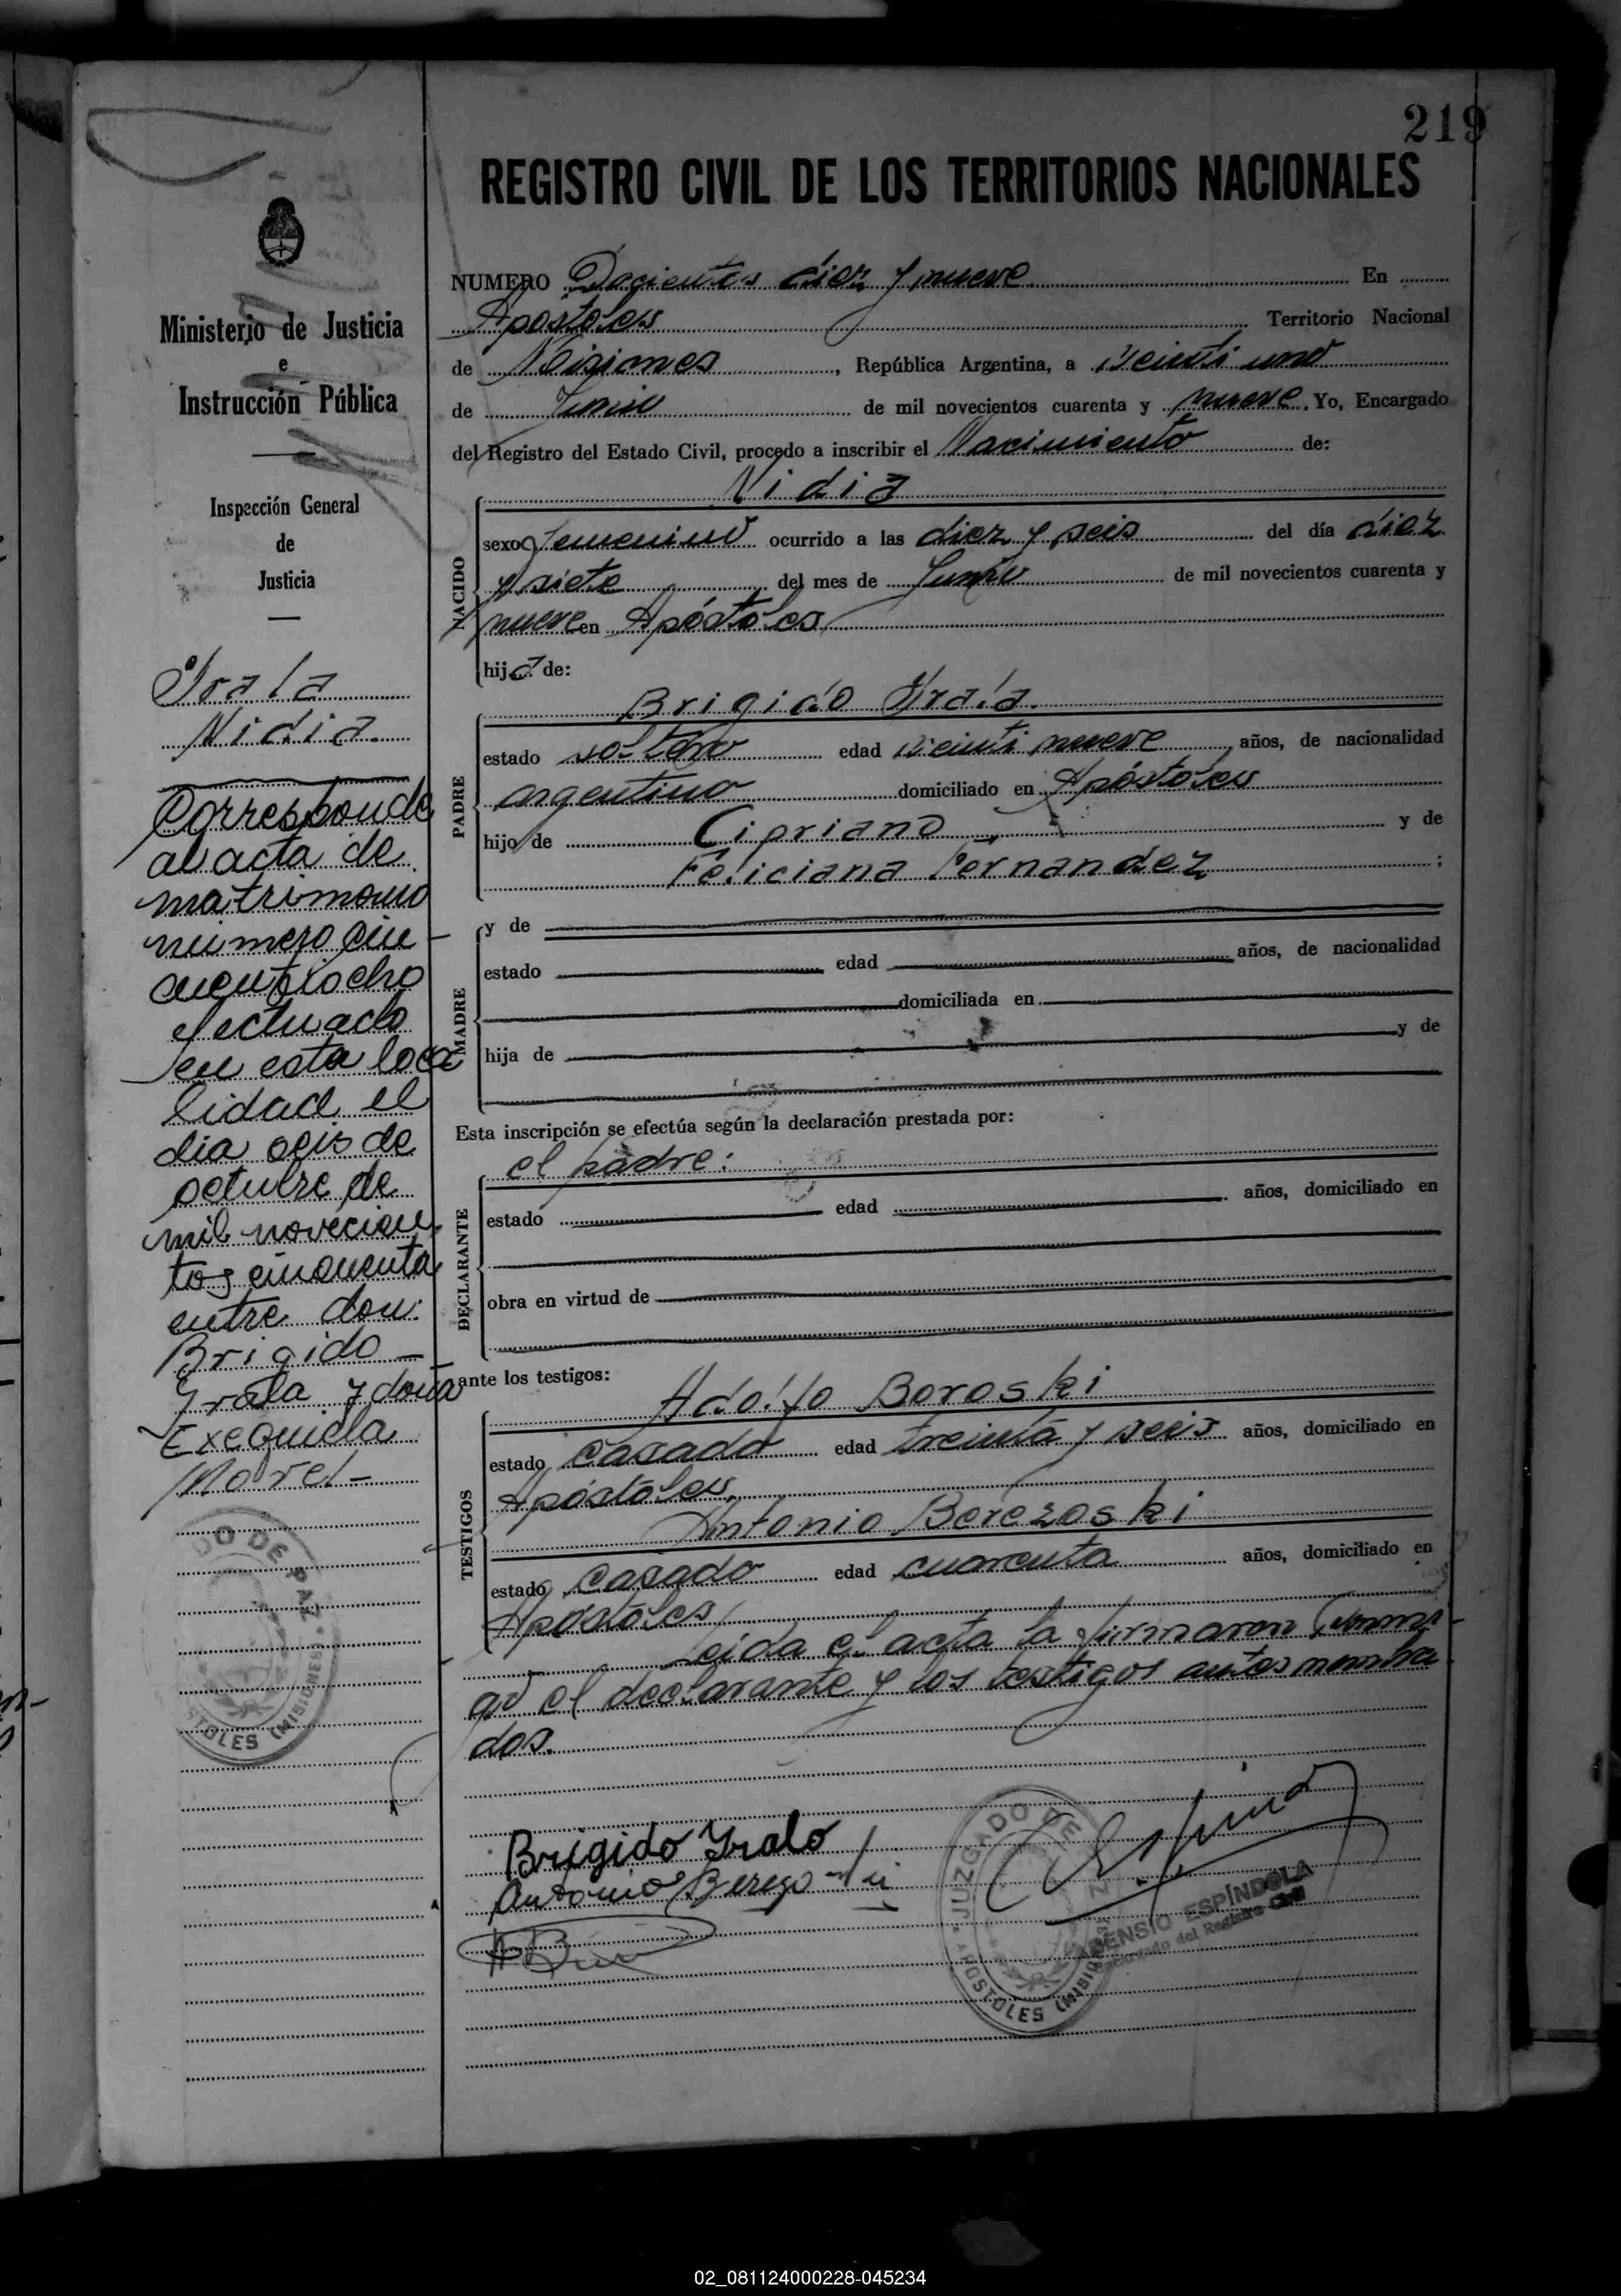 219
REGISTRO CIVIL DE LOS TERRITORIOS NACIONALES
Ministerio de Justicia
e
Instrucción Pública
Inspección General
de
Justicia
Irala
Nidia.
Corresponde
al acta de
matrimonio
numero cin-
cuentiocho
efectuado
en esta loca
lidad el
dia seis de
octubre de
mil novecien
tos cincuenta
entre don:
Brigido -
Irala y doña
Exequiela
Morel-
NUMERO Docientos diez y nueve En
Apostoles Territorio Nacional
de Misiones, República Argentina, a veinti uno
de Junio de mil novecientos cuarenta y nueve. Yo, Encargado
del Registro del Estado Civil, procedo a inscribir el Nacimiento de:
Nidia
NACIDO
sexo femenino ocurrido a las diez y seis del día diez
y siete del mes de Junio de mil novecientos cuarenta y
nueve en Apóstoles
hija de:
Brigido Irala.
PADRE
estado soltero edad veinti nueve años, de nacionalidad
argentino domiciliado en Apóstoles
hijo de Cipriano y de
Feliciana Fernandez ;
MADRE
y de
estado edad años, de nacionalidad
domiciliada en
hija de y de
Esta inscripción se efectúa según la declaración prestada por:
el padre:
DECLARANTE
estado edad años, domiciliado en
obra en virtud de
ante los testigos:
Adolfo Boroski
TESTIGOS
estado casado edad treinta y seis años, domiciliado en
Apóstoles.
Antonio Berezoski
estado casado edad cuarenta años, domiciliado en
Apóstoles
Leida el acta la firmaron conmi-
go el declarante y los testigos antes nombra
dos.
Brigido Yralo
Antonio
JUZGADO DE
APOSTOLES (MISIONES)
ASENSIO ESPÍNDOLA
Encargado del Registro Civil
DO DE PAZ
STOLES (MISIONES)
02_081124000228-045234